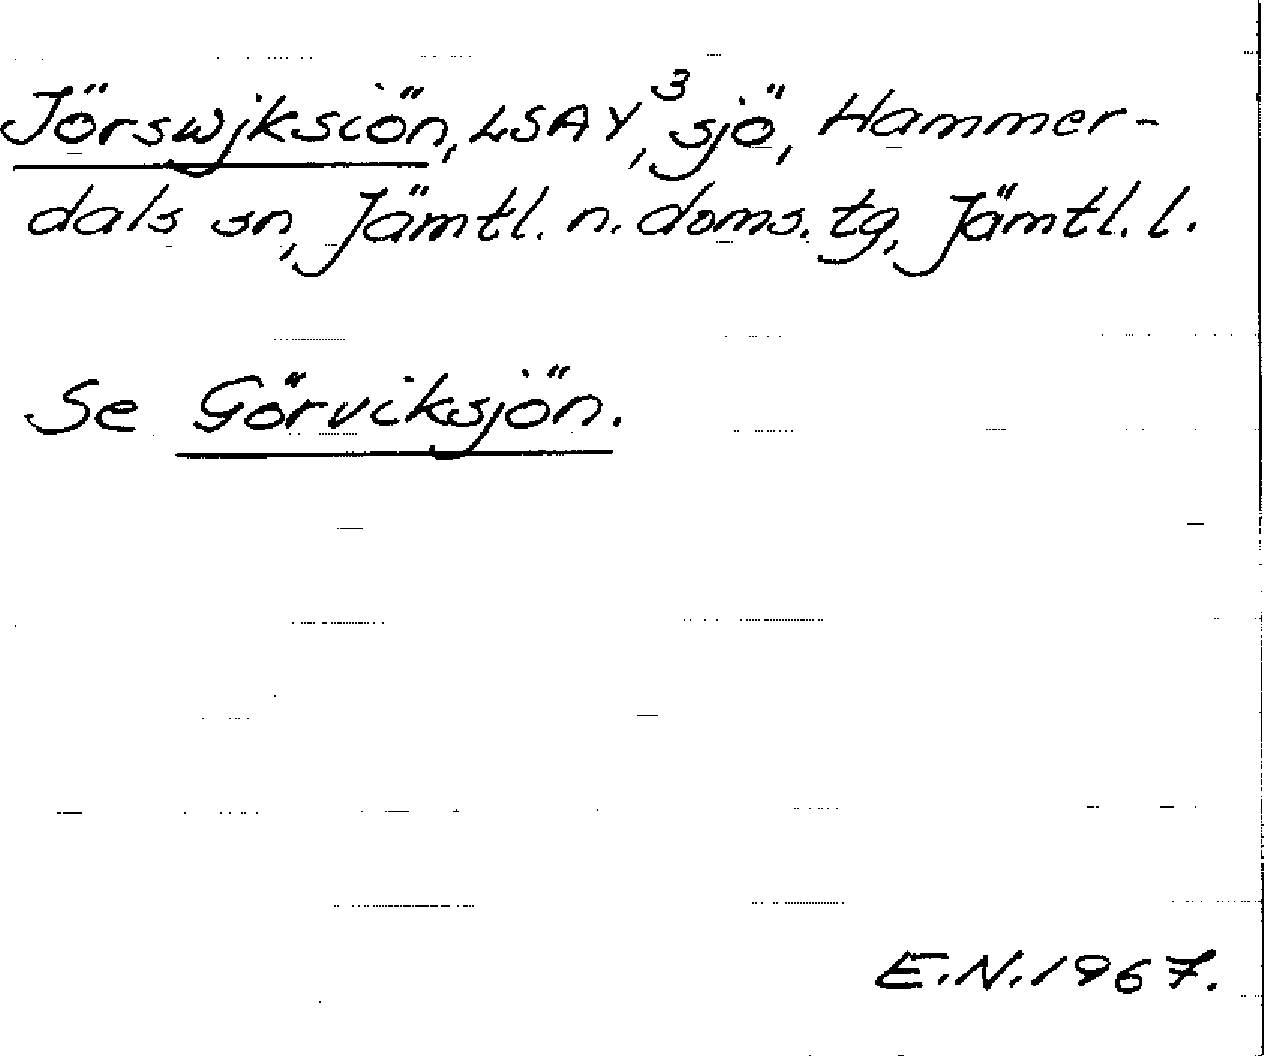 Jörswjksiön, LSA Y³, sjö, Hammer-
dals sn, Jämtl. n. doms. tg, Jämtl. l.
Se Görviksjön.
E.N. 1967.